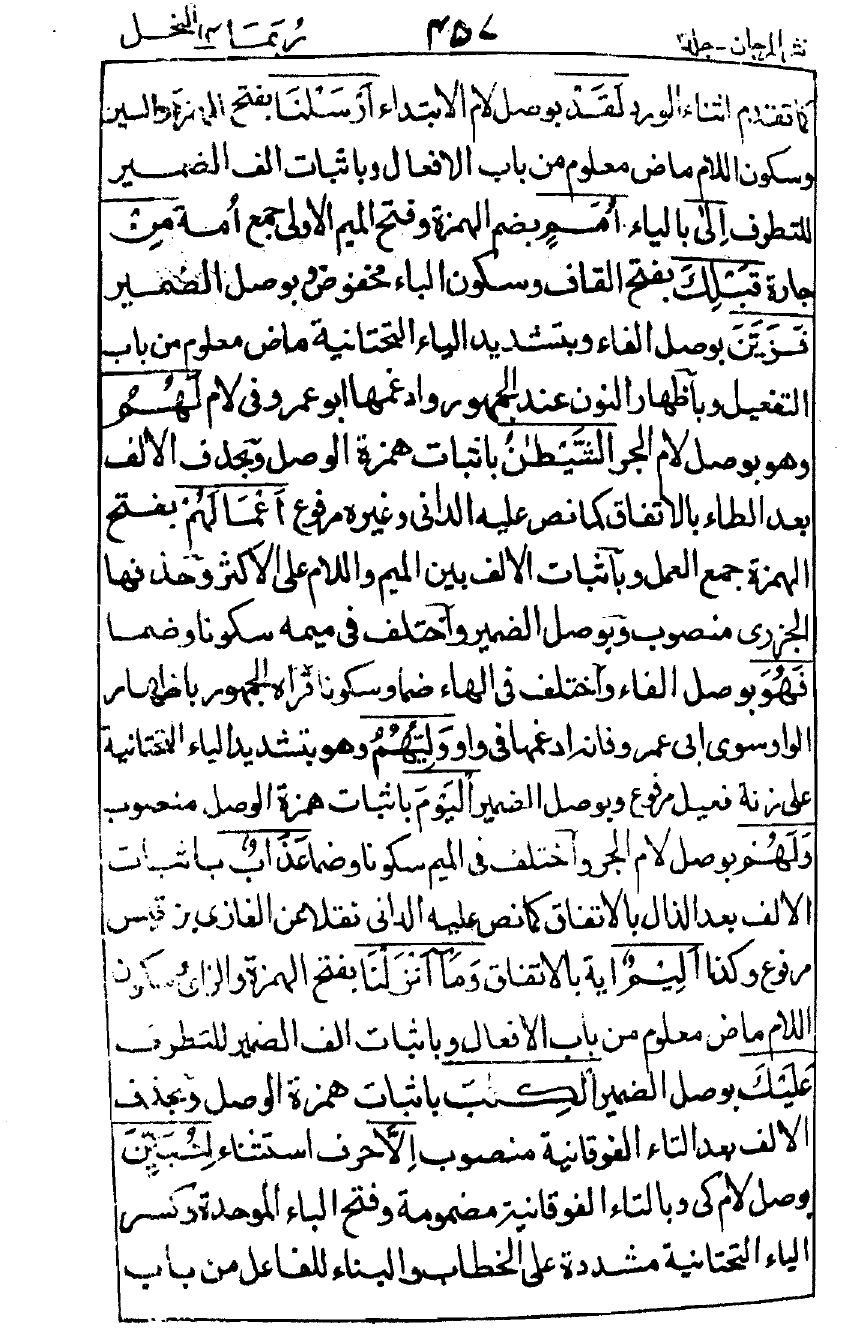 نثر المرجان - جلد ٣ ٤٥٧ ربما ١٤ النحل
كما تقدم اثناء الورد لَقَدْ بوصل لام الابتداء اَرْسَلْنَا بفتح الهمزة والسين
وسكون اللام ماض معلوم من باب الافعال وباثبات الف الضمير
للتطرف اِلٰى بالياء اُمَمٍ بضم الهمزة وفتح الميم الاولى جمع أمة مِنْ
جارة قَبْلِكَ بفتح القاف وسكون الباء مخفوض وبوصل الضمير
فَزَيَّنَ بوصل الفاء وبتشديد الياء التحتانية ماض معلوم من باب
التفعيل وبأظهار النون عند الجمهور وادغمها ابو عمرو فى لام لَهُمُ
وهو بوصل لام الجر الشَّيْطٰنُ باثبات همزة الوصل وبحذف الالف
بعد الطاء بالاتفاق كما نص عليه الدانى وغيره مرفوع اَعْمَالَهُمْ بفتح
الهمزة جمع العمل وبآثبات الالف بين الميم واللام على الاكثر وحذفها
الجزرى منصوب وبوصل الضمير واختلف فى ميمه سكونا وضما
فَهُوَ بوصل الفاء واختلف فى الهاء ضما وسكونا قرأه الجمهور باظهار
الواو سوى ابى عمرو فانه ادغمها فى واو وَلِيُّهُمُ وهو بتشديد الياء التحتانية
على زنة فعيل مرفوع وبوصل الضمير الْيَوْمَ باثبات همزة الوصل منصوب
وَلَهُمْ بوصل لام الجر واختلف فى الميم سكونا وضما عَذَابٌ باثبات
الالف بعد الذال بالاتفاق كما نص عليه الدانى نقلا عن الغازى بن قيس
مرفوع وكذا اَلِيْمٌ اية بالاتفاق وَمَآ اَنْزَلْنَا بفتح الهمزة والزاى وسكون
اللام ماض معلوم من باب الافعال وباثبات الف الضمير للتطرف
عَلَيْكَ بوصل الضمير الْكِتٰبَ باثبات همزة الوصل وبحذف
الالف بعد التاء الفوقانية منصوب اِلَّا حرف استثناء لِتُبَيِّنَ
بوصل لام كى وبالتاء الفوقانية مضمومة وفتح الباء الموحدة وكسر
الياء التحتانية مشددة على الخطاب والبناء للفاعل من باب